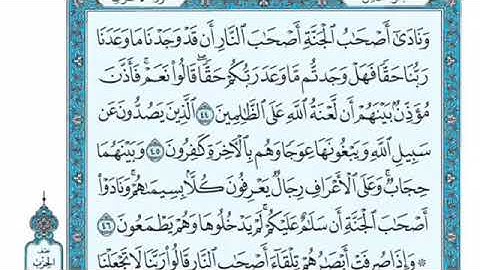 وَنَادَىٰٓ أَصْحَٰبُ ٱلْجَنَّةِ أَصْحَٰبَ ٱلنَّارِ أَن قَدْ وَجَدْنَا مَا وَعَدَنَا
رَبُّنَا حَقًّا فَهَلْ وَجَدتُّم مَّا وَعَدَ رَبُّكُمْ حَقًّا ۖ قَالُوا۟ نَعَمْ ۚ فَأَذَّنَ
مُؤَذِّنٌۢ بَيْنَهُمْ أَن لَّعْنَةُ ٱللَّهِ عَلَى ٱلظَّٰلِمِينَ ٤٤ ٱلَّذِينَ يَصُدُّونَ عَن
سَبِيلِ ٱللَّهِ وَيَبْغُونَهَا عِوَجًا وَهُم بِٱلْءَاخِرَةِ كَٰفِرُونَ ٤٥ وَبَيْنَهُمَا
حِجَابٌ ۚ وَعَلَى ٱلْأَعْرَافِ رِجَالٌ يَعْرِفُونَ كُلًّۢا بِسِيمَىٰهُمْ ۚ وَنَادَوْا۟
أَصْحَٰبَ ٱلْجَنَّةِ أَن سَلَٰمٌ عَلَيْكُمْ ۚ لَمْ يَدْخُلُوهَا وَهُمْ يَطْمَعُونَ ٤٦
۞ وَإِذَا صُرِفَتْ أَبْصَٰرُهُمْ تِلْقَآءَ أَصْحَٰبِ ٱلنَّارِ قَالُوا۟ رَبَّنَا لَا تَجْعَلْنَا
نصف
الحزب